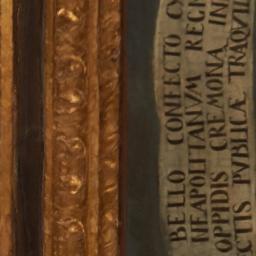 BELLO CONFECTO C
NEAPOLITANVM REGN
OPPIDIS CREMONA IN
CTIS PVBLICÆ TRAQVIL